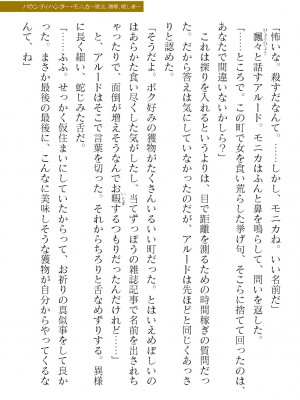 バウンティハンター・モニカ
「怖いな。殺すだなんて……しかし、モニカね。いい名前だ」
飄々と話すアルード。モニカはふんと鼻を鳴らして、問いを返した。
「……ところで、この町で女を食い荒らした挙げ句、そこらに捨てて回ったのは、
あなたで間違いないかしら？」
これは探りを入れるというよりは、目で距離を測るための時間稼ぎの質問だっ
た。だから答えは気にしていなかったのだが、アルードは先ほどと同じくあっさ
りと認めた。
「そうだよ。ボク好みの獲物がたくさんいるいい町だった。とはいえめぼしいの
はあらかた食い尽くした気がしたし、当てずっぽうの雑誌記事で名前を出されち
ゃったりで、面倒が増えそうなんでお暇するつもりだったんだけれど……」
と、アルードはそこで言葉を切った。それからちろりと舌なめずりする。異様
に長く細い、蛇じみた舌だ。
「……ふふ。せっかく仮住まいにしていたからって、お祈りの真似事をして良か
った。まさか最後の最後に、こんなに美味しそうな獲物が自分からやってくるな
んて、ね」